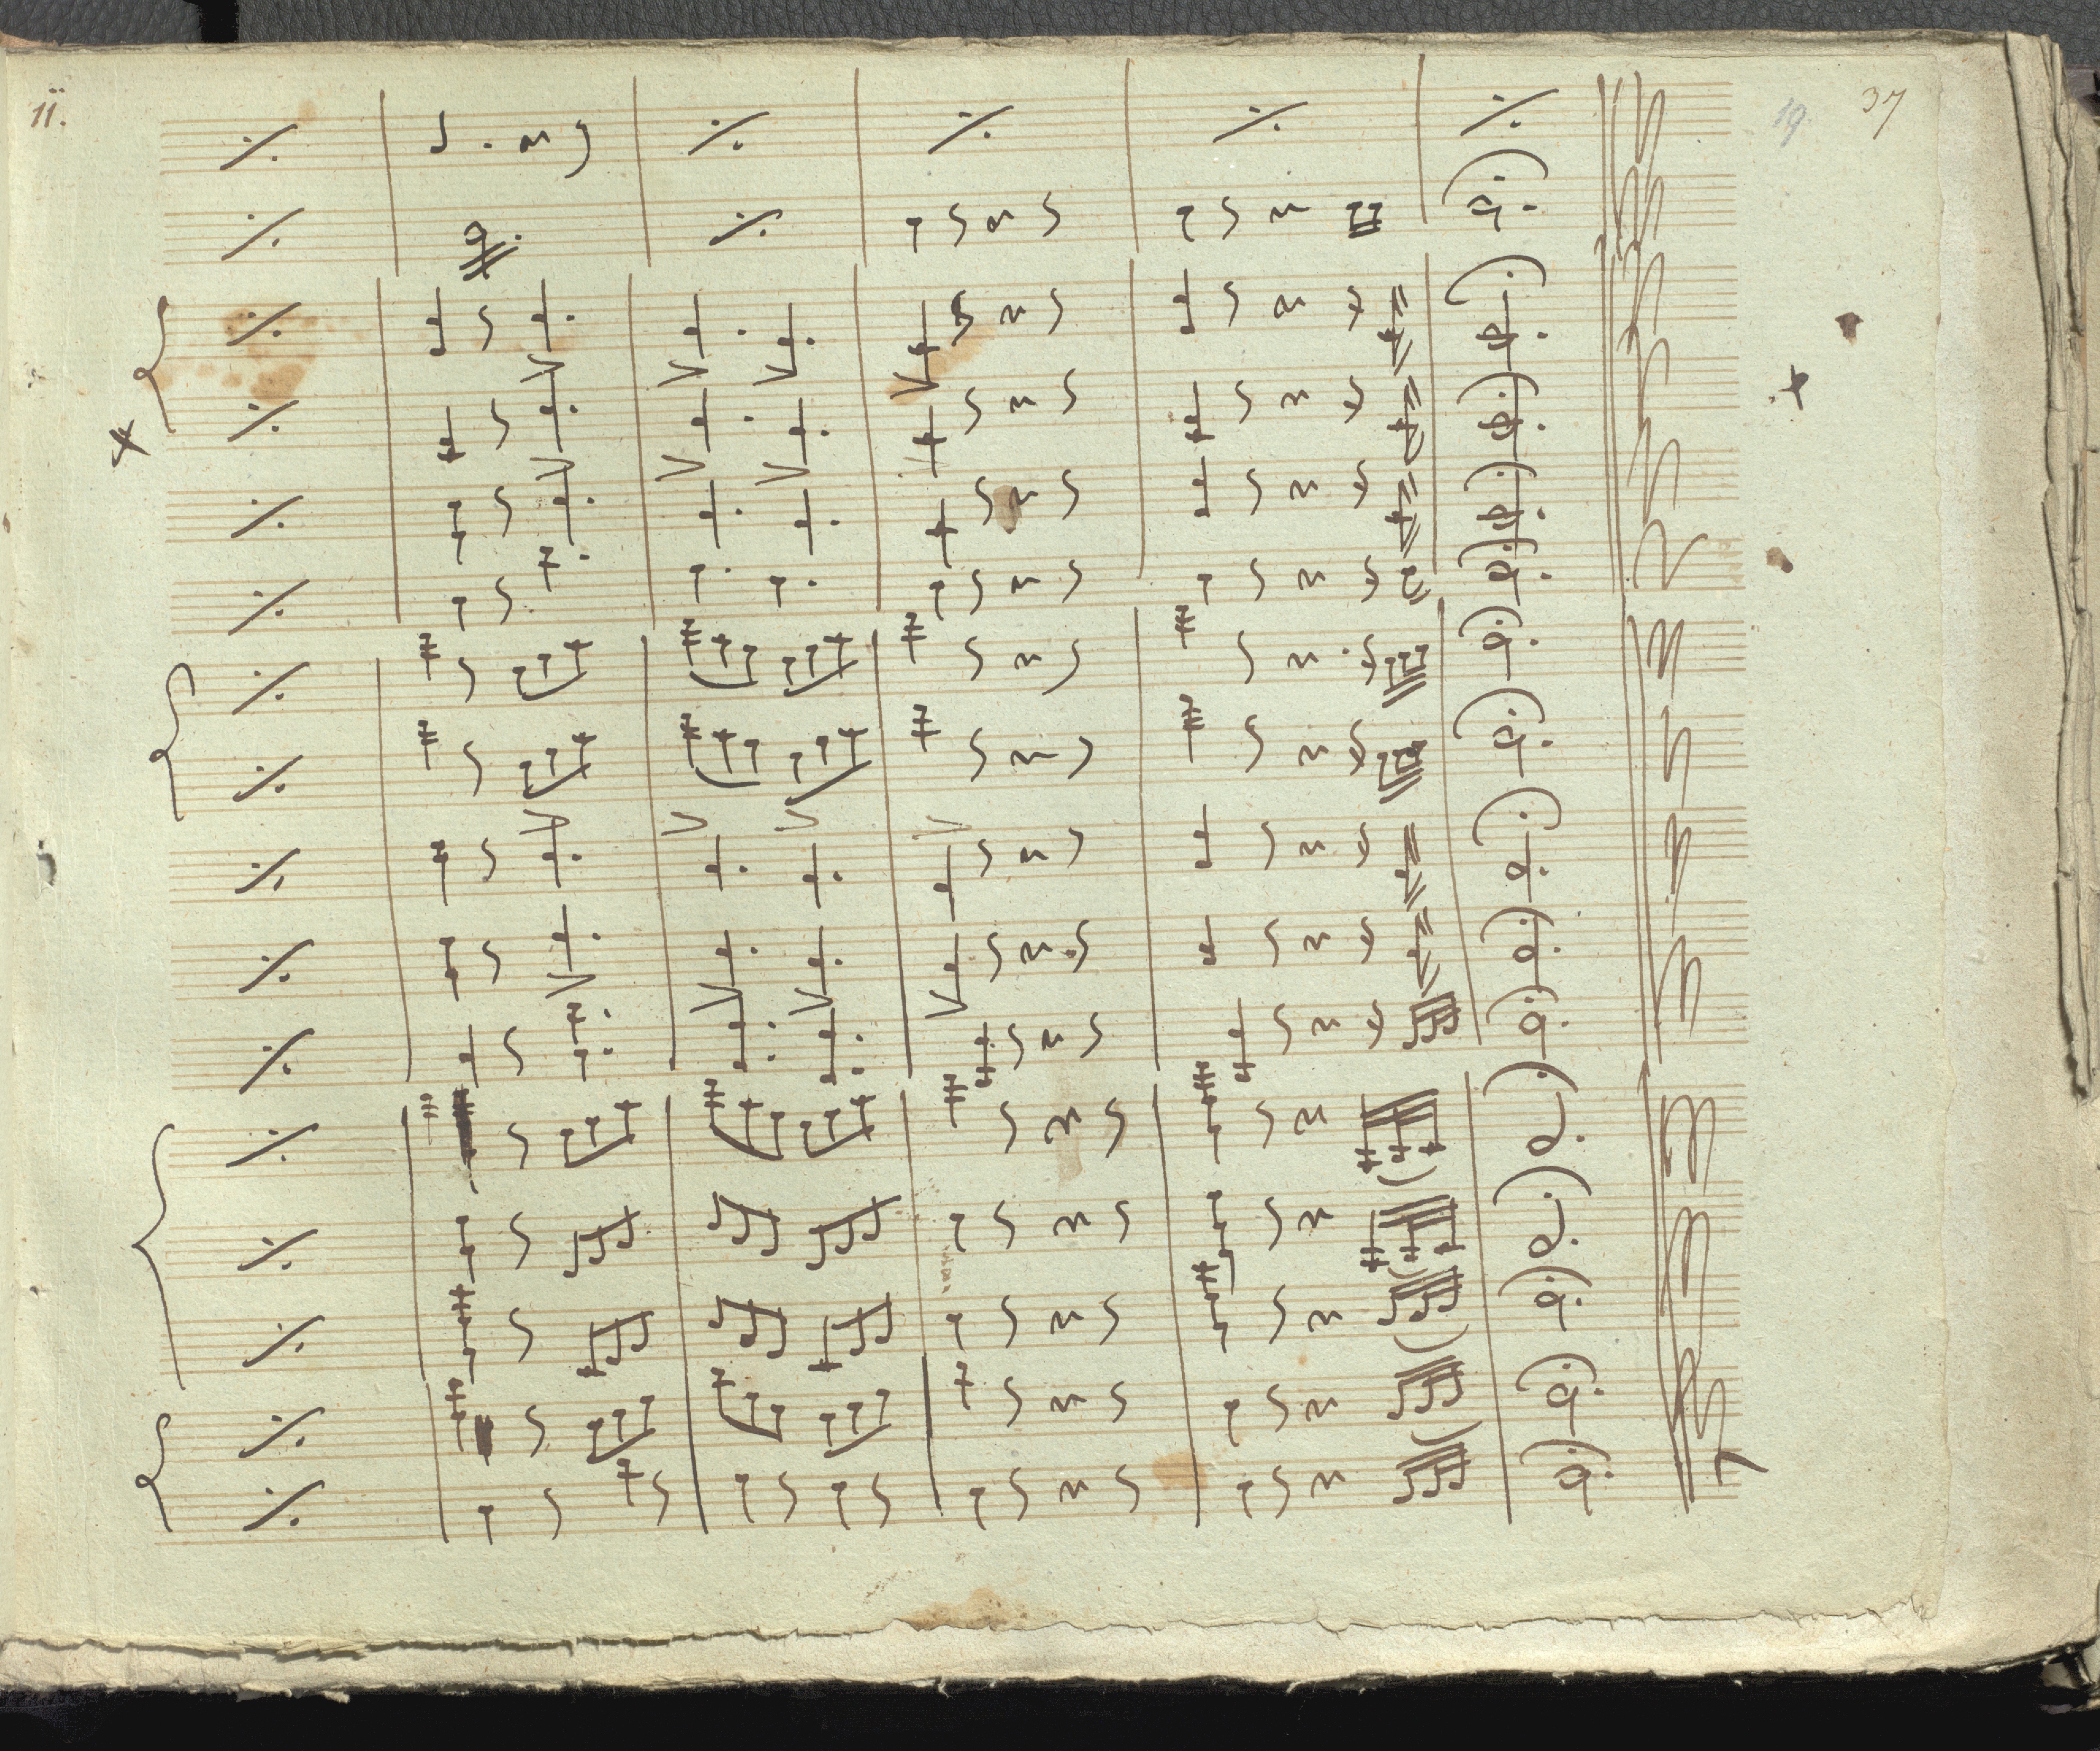 11.
19.
37